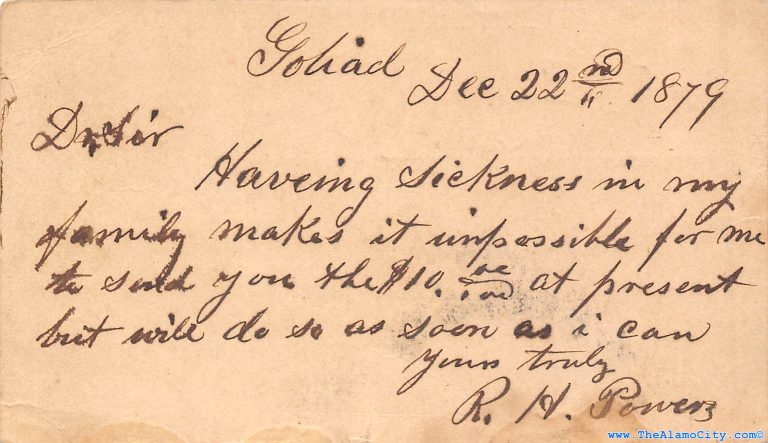 Goliad
Dec 22nd 1879
Dr Sir
Haveing Sickness in my
family makes it impossible for me
to send you the $10. at present
but will do so as soon as i can
yours truly
R. H. Powers
www.TheAlamoCity.com©